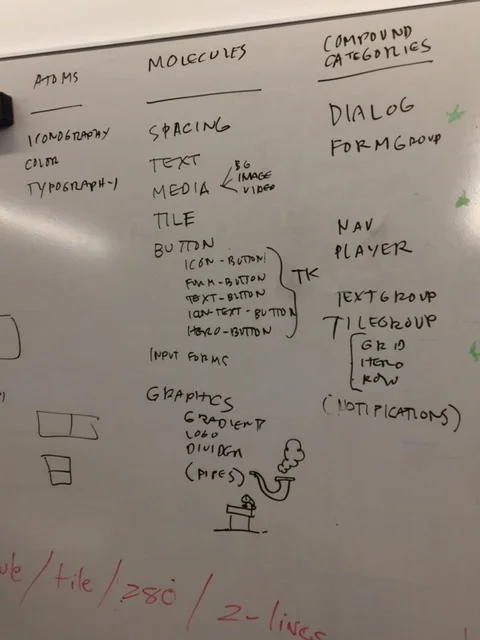 ATOMS
ICONOGRAPHY
COLOR
TYPOGRAPHY
MOLECULES
SPACING
TEXT
MEDIA
BG
IMAGE
VIDEO
TILE
BUTTON
ICON-BUTTON
FORM-BUTTON
TEXT-BUTTON
ICON-TEXT-BUTTON
HERO-BUTTON
TK
INPUT FORMS
GRAPHICS
GRADIENT
LOGO
DIVIDER
(PIPES)
COMPOUND
CATEGORIES
DIALOG
FORMGROUP
NAV
PLAYER
TEXTGROUP
TILEGROUP
GRID
HERO
ROW
(NOTIFICATIONS)
/tile/280/2-lines